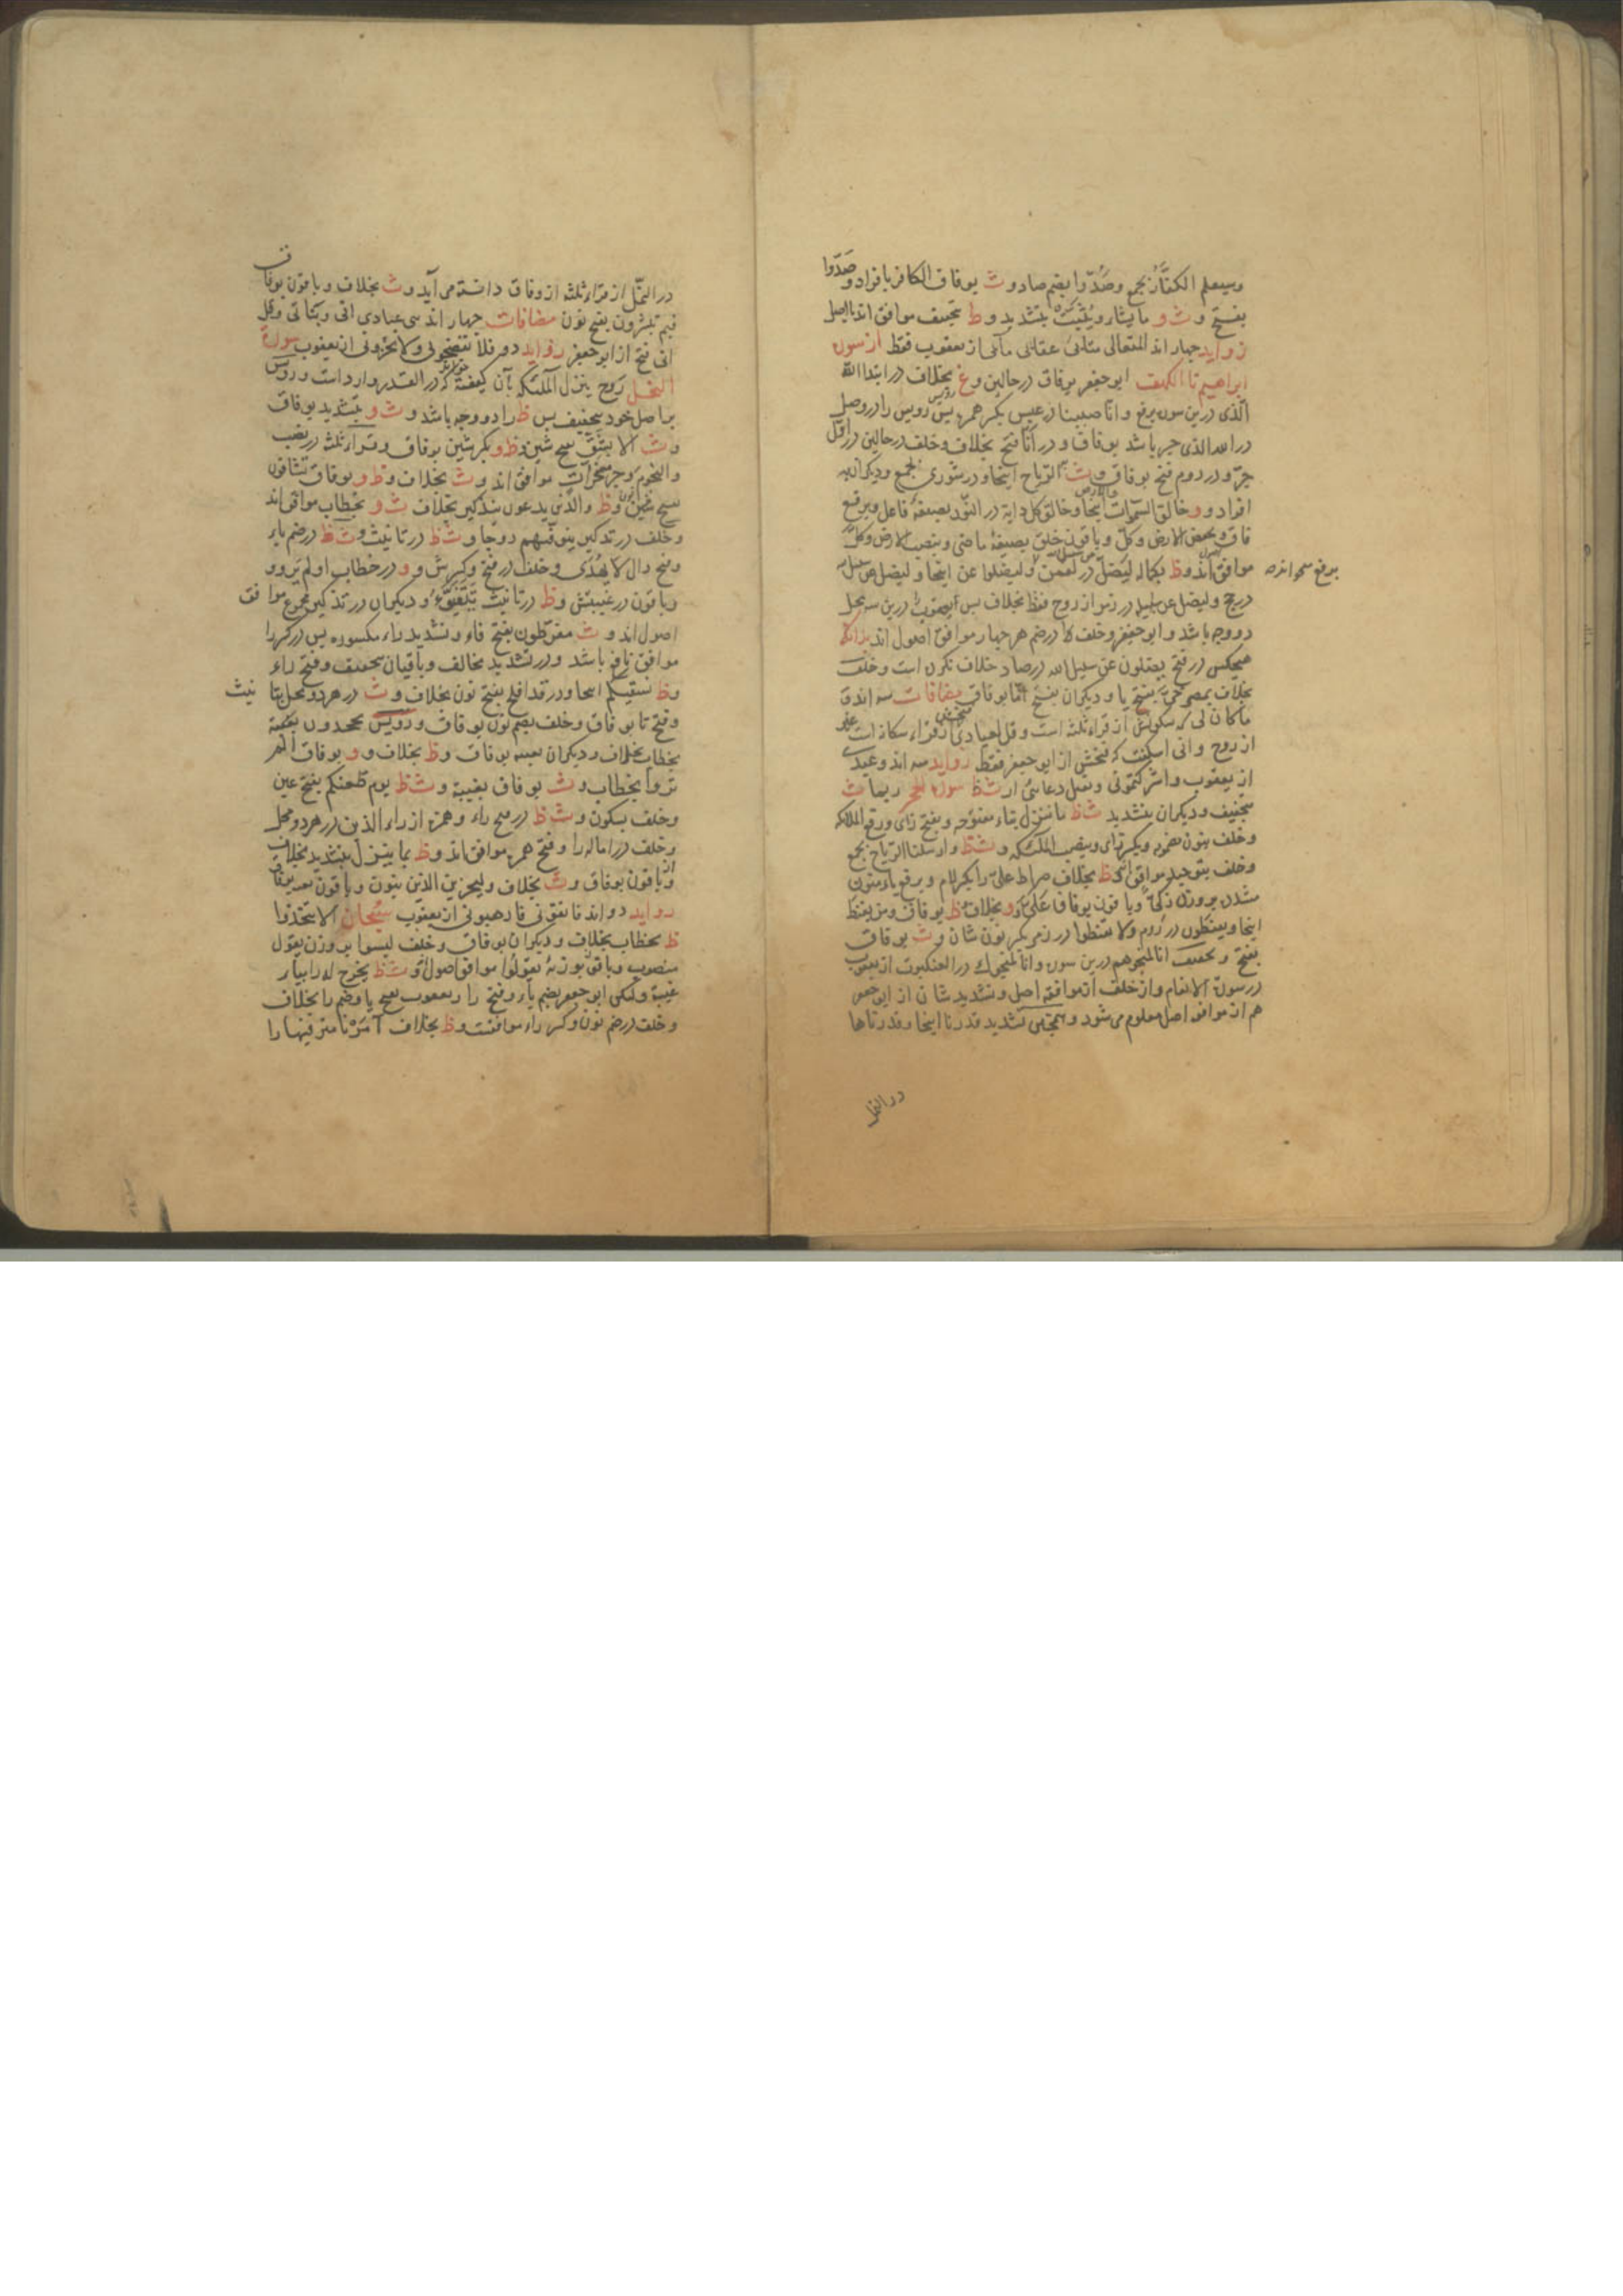 وسیعلم الکفّارُ بجمع وصُدّوا بضم صاد و ث بوفاق الکافر بافراد وصَدّوا
بفتح و ث و ما یشاء ویُثبّت بتشدید و ظ بتخفیف موافق اند با اصل
زواید چهار اند المتعالی متابی عقابی مآبی از یعقوب فقط از سورة
ابراهیم تا الکهف ابو جعفر بوفاق در حالین و غ بخلاف در ابتدا الله
الّذی درین سوره برفع و انّا صببنا در عبس بکسر همزه پس رویس را در وصل
در الله الذی جر باشد بوفاق و در انّا فتح بخلاف وخلف در حالین در اوّل
جرّ و در دوم فتح بوفاق و ث الرّیاح اینجا و در شوری بجمع و دیکران به
افراد و و خالق السّموات والارض اینجا و خالق کل دابة در النّور بصیغهٔ فاعل و برفع
قاف و بخفض الارض وکلّ و باقون خلق بصیغهٔ ماضی و بنصب الارض وکلّ
موافق اند و ظ لیضلّ در لقمن و لیضلوا عن اینجا و لیضل عن سبیل
در حج و لیضل عن سبیله در زمر از روح فقط بخلاف پس یعقوب را درین سه محل
دو وجه باشد و ابو جعفر وخلف در ضم هر چهار موافق اصول اند بدانکه
هیچکس در فتح یضلون عن سبیل الله در صاد خلاف نکرده است وخلف
بخلاف بمصرخیَّ بفتح یا و دیکران بفتح بوفاق مضافات سه اند
ما کان لی که سکونش از قراء ثلثه است و قل لعبادی از قراء سکانه است
از روح و انی اسکنت که فتحش از ابو جعفر فقط زواید سه اند وعیدی
از یعقوب و اشرکتمونی و تقبل دعائی از ث ظ سورة الحجر ربما ث
بتخفیف و دیکران بتشدید ث ظ ما تنزل بتاء مفتوحه و بفتح زای و رفع الملائکه
وخلف بنون مضمومه و بکسر زای و بنصب الملئکه و ث ظ وارسلنا الرّیاح بجمع
وخلف بتوحید موافق اند و ظ بخلاف صراط علیّ را بکسر لام و برفع یاء منون
مشدد بر وزن زکیّ و باقون بوفاق علیَّ و و بخلاف ظ بوفاق ومن یقنط
اینجا و یقنطون در روم و لا تقنطوا در زمر بکسر نون شان و ث بوفاق
بفتح و تخفیف انا لمنجوهم درین سوره و انا منجوک در العنکبوت از یعقوب
در سورة الانعام و از خلف از موافقه اصل و تشدید شان از ابو جعفر
هم از موافقه اصل معلوم می شود و همچنین تشدید قدرنا اینجا و قدرناها
برفع
در النمل
در النّمل از قراء ثلثه از وفاق دانسته می آید و ث بخلاف و باقون بوفاق
فبم تبشرون بفتح نون مضافات چهار اند سی عبادی انی و بناتی و قل
انی فتح از ابو جعفر زواید دو فلا تفضحونی و لا تخزونی از یعقوب سورة
النحل روح ینزل الملئکه بآن کیفیة که در القدر وارد است و رویس
بر اصل خود بتخفیف پس ظ را دو وجه باشد و ث و بتشدید بوفاق
و ث الا بشقّ بفتح شین و ظ و بکسر شین بوفاق و قراء ثلثه در نصب
والنجوم وجر مسخرات موافق اند و ث بخلاف و ظ و بوفاق تشاقون
بفتح نون و ظ والذین یدعون بتذکیر بخلاف ث و بخطاب موافق اند
وخلف در تذکیر یتوفیهم دو جا و ث ظ در تانیث و ث ظ در ضم یاء
وفتح دال لا یُهدَی وخلف در فتح وکسرش و و در خطاب اولم تروو
وباقون در غیبتش و ظ در تانیث تتفیّؤ و دیکران در تذکیر مجموع موافق
اصول اند و ث مفرّطون بفتح فاء و تشدید راء مکسوره پس در کسر را
موافق نافع باشد و در تشدید مخالف و باقیان بتخفیف و فتح راء
و ظ نسقیکم اینجا و در قد افلح بفتح نون بخلاف و ث در هر دو محل بتانیث
وفتح تا بوفاق وخلف بضم نون بوفاق و رویس یجحدون
بخطاب بخلاف و دیکران بغیبة بوفاق و ظ بخلاف و و بوفاق الم
تروا بخطاب و ث بوفاق بغیبة و ث ظ یوم ظعنکم بفتح عین
وخلف بسکون و ث ظ در فتح راء و همزه از راء الذین در هر دو محل
وخلف در اماله را و فتح همزه موافق اند و ظ بما ینزل بتشدید بخلاف
و باقون بوفاق و ث بخلاف ولیجزین الذین بنون و باقون بوفاق
زواید دو اند فاتقونی فارهبونی از یعقوب سبحان الا تتخذوا
ظ بخطاب بخلاف و دیکران بوفاق وخلف لیسوا بر وزن یقول
منصوب و باقون بوزن یقولوا موافق اصول و ث ظ یخرج له را بیاء
غیبة ولکن ابو جعفر بضم یا و فتح را و یعقوب بفتح یا و ضم را بخلاف
وخلف در ضم نون وکسر راء موافقست و ظ بخلاف آمَرْنا مترفیها را